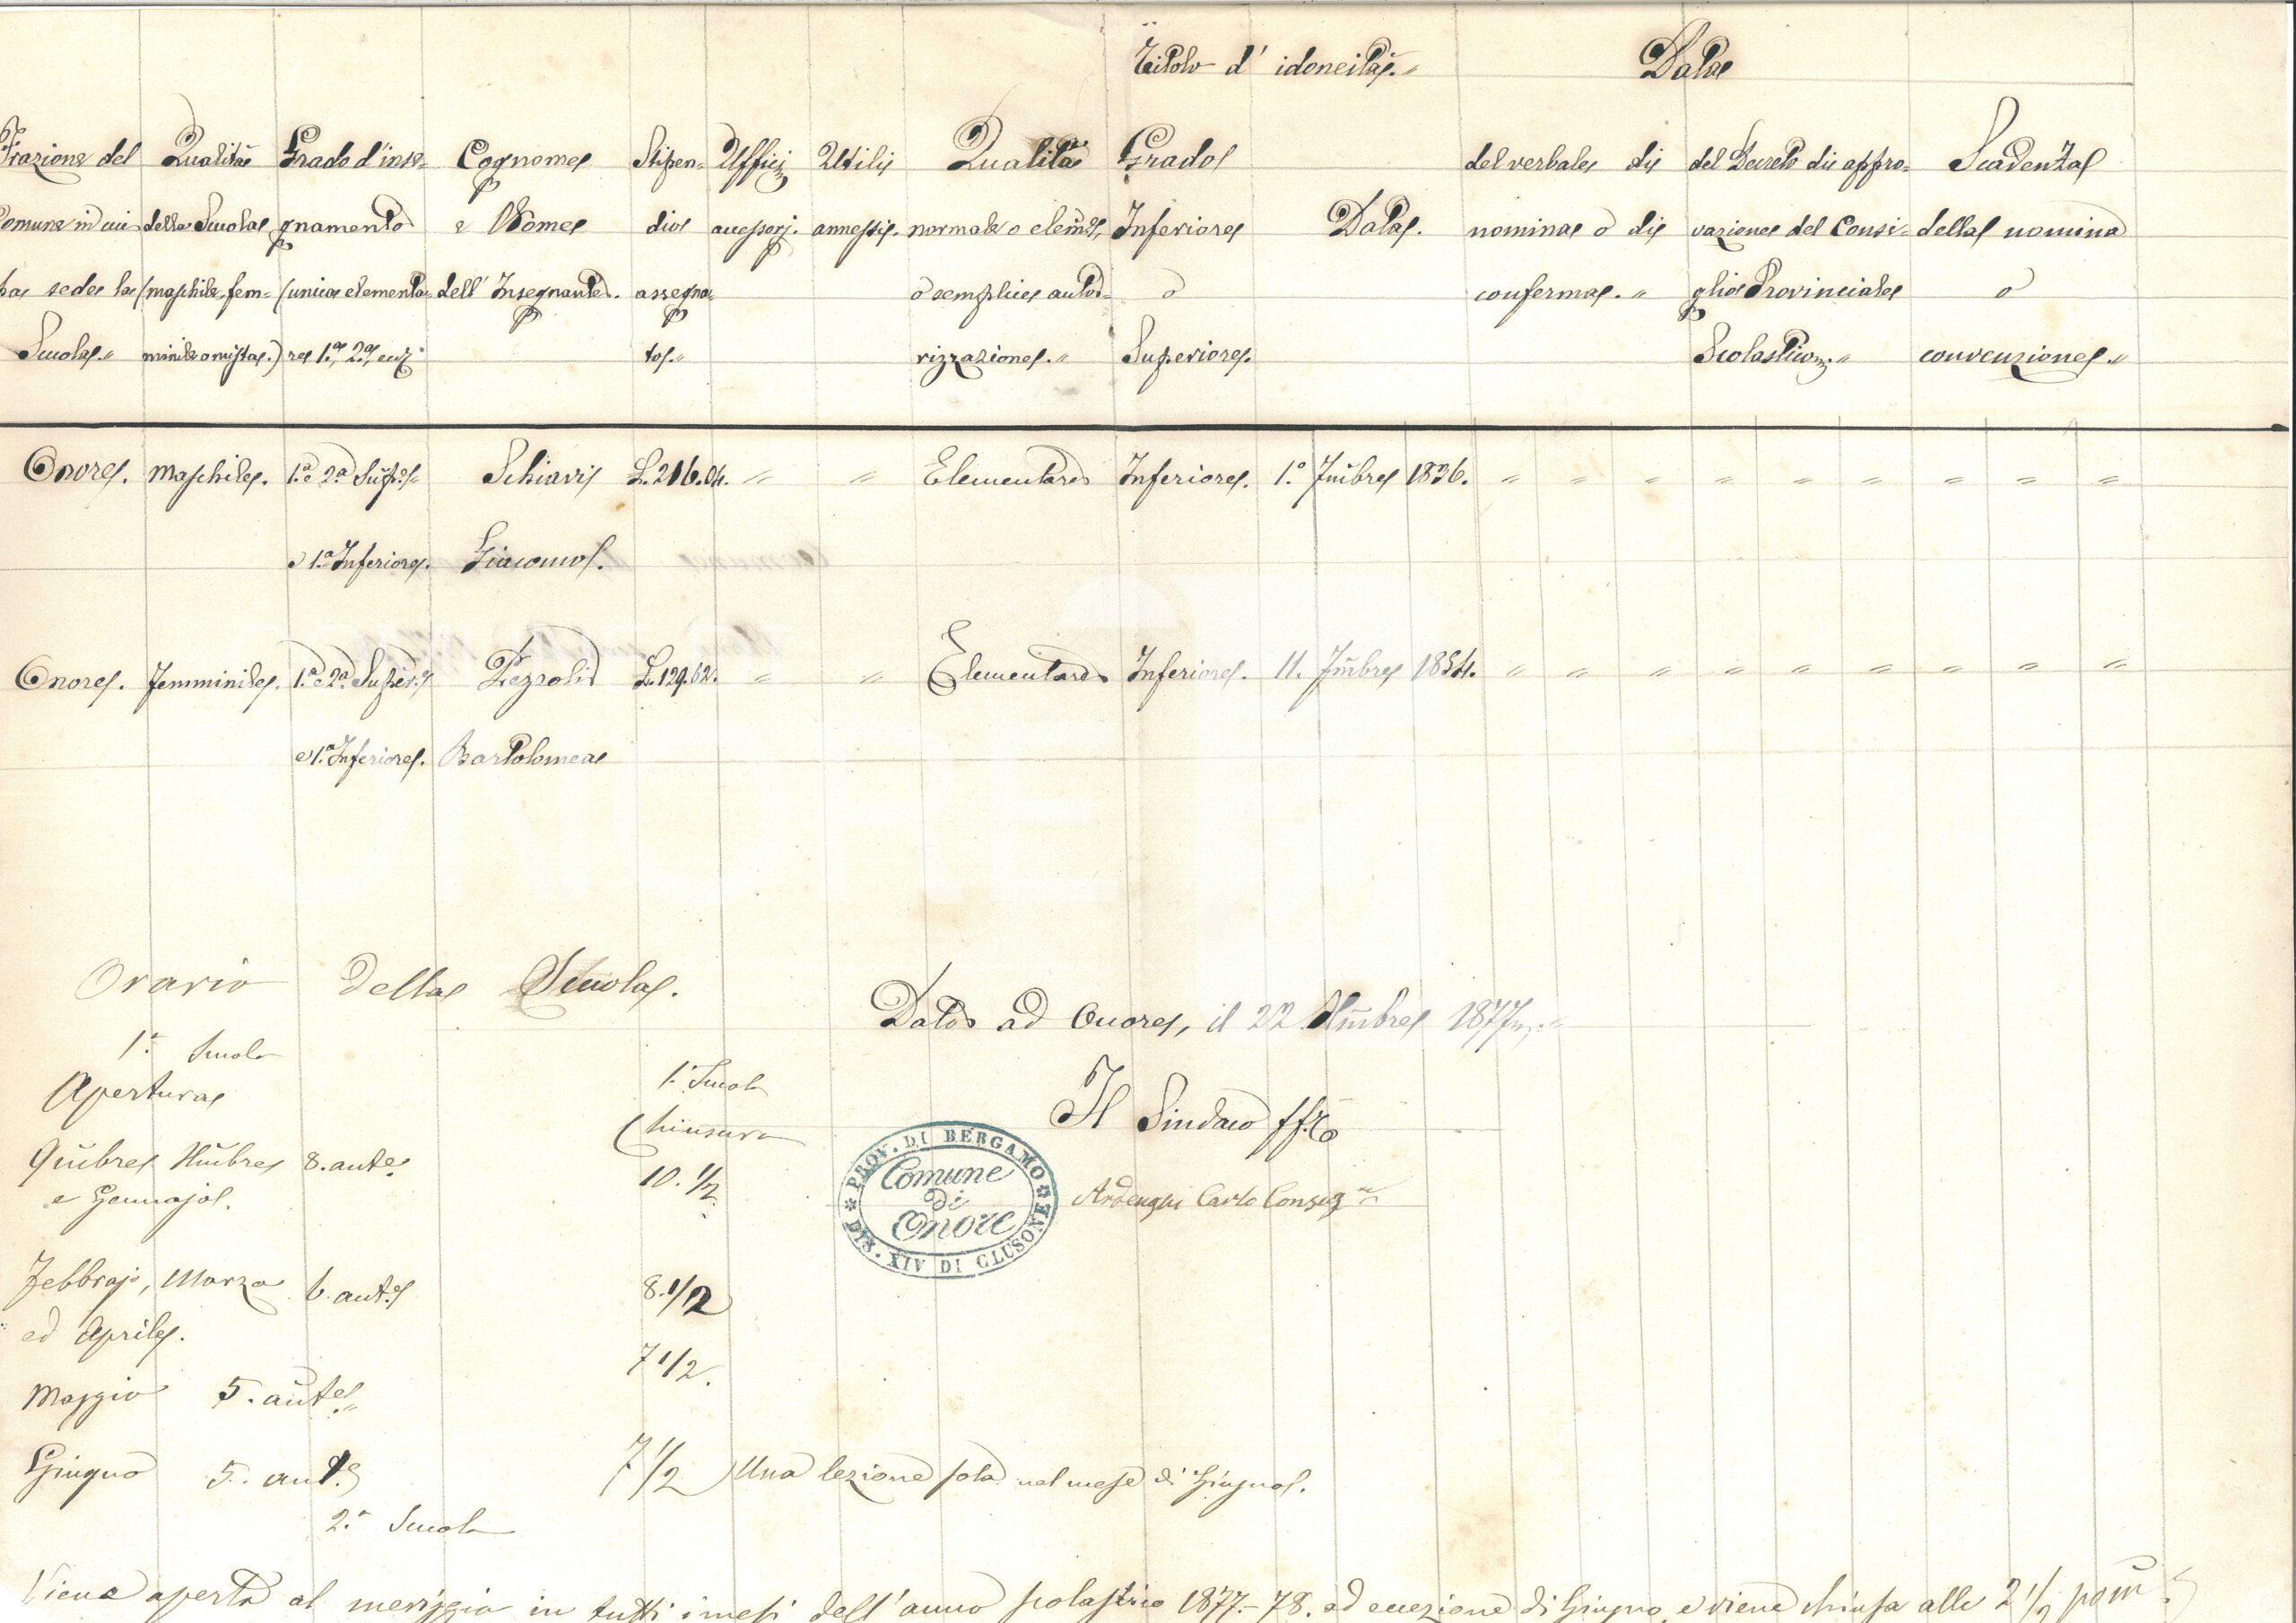 Titolo d' idoneità.〃 Data
Frazione del Qualità Grado d'inse- Cognome Stipen- Ufficj Utili Qualità Grado del verbale di del Decreto di appro- Scadenza
Comune in cui della Scuola gnamento e Nome dio accessorj. annessi. normale o elem.e, Inferiore Data. nomina o di vazione del Consi- della nomina
ha sede la (maschile, fem- (unica elementa- dell' Insegnante. assegna- o semplice auto- o conferma.〃 glio Provinciale o
Scuola.〃 minile o mista.) re 1.a, 2.a, ecc. to.〃 rizzazione.〃 Superiore. Scolastico.〃 convenzione.〃
Onore. Maschile. 1.a e 2.a Sup.e Schiavi L. 216.04. 〃 〃 Elementare Inferiore. 1.° 7mbre 1836. 〃 〃 〃 〃 〃 〃 〃 〃 〃
e 1.a Inferiore. Giacomo.
Onore. Femminile. 1.a e 2.a Super.e Pezzoli L. 129.62. 〃 〃 Elementare Inferiore. 11. 7mbre 1854. 〃 〃 〃 〃 〃 〃 〃 〃 〃
e 1.a Inferiore. Bartolomea
Orario della Scuola.
Dato ad Onore, il 22 Xmbre 1877.〃
1.a Scuola 1.a Scuola
Apertura Chiusura
Il Sindaco ff.
9mbre Xmbre 8. ant.e 10. 1/2
e Gennajo.
PROV. DI BERGAMO
Comune
di
Onore
DIS. XIV DI CLUSONE
Ardenghi Carlo Consig.re
Febbrajo, Marzo 6. ant.e 8. 1/2
ed Aprile.
Maggio 5. ant.e 7 1/2.
Giugno 5. ant.e 7 1/2 Una lezione sola nel mese di Giugno.
2.a Scuola
Viene aperta al meriggio in tutti i mesi dell'anno scolastico 1877.-78. ad eccezione di Giugno, e viene chiusa alle 2 1/2 pom.